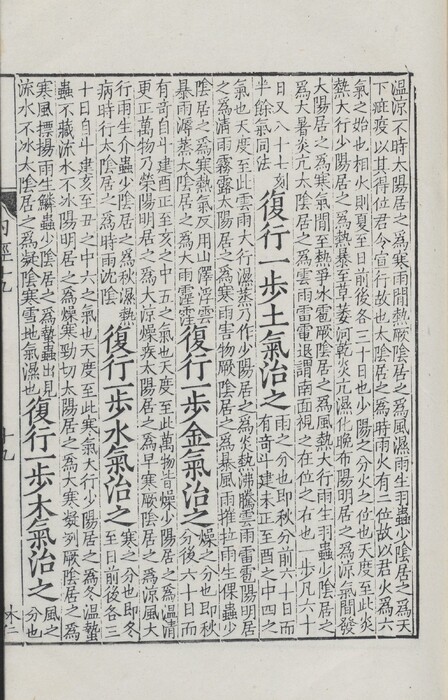 溫涼不時大陽居之爲寒雨閒熱厥陰居之爲風濕雨生羽蟲少陰居之爲天
下疵疫以其得位君令宣行故也太陰居之爲時雨火有二位故以君火爲六
氣之始也相火則夏至日前後各三十日也少陽之分火之位也天度至此炎
熱大行少陽居之爲熱暴至草萎河乾炎亢濕化晚布陽明居之爲涼氣閒發
大陽居之爲寒氣閒至熱爭氷雹厥陰居之爲風熱大行雨生羽蟲少陰居之
爲大暑炎亢太陰居之爲雲雨雷電退謂南面視之在位之右也一步凡六十
日又八十七刻
半餘氣同法
復行一步土氣治之
雨之分也即秋分前六十日而
有奇斗建未正至酉之中四之
氣也天度至此雲雨大行濕蒸乃作少陽居之爲炎熱沸騰雲雨雷雹陽明居
之爲清雨霧露太陽居之爲寒雨害物厥陰居之爲暴風雨摧拉雨生倮蟲少
陰居之爲寒熱氣反用山澤浮雲
暴雨溽蒸太陰居之爲大雨霪霔
復行一步金氣治之
燥之分也即秋
分後六十日而
有奇自斗建酉正至亥之中五之氣也天度至此萬物皆燥少陽居之爲溫清
更正萬物乃榮陽明居之爲大涼燥疾太陽居之爲早寒厥陰居之爲涼風大
行雨生介蟲少陰居之爲秋濕熱
病時行太陰居之爲時雨沈陰
復行一步水氣治之
寒之分也即冬
至日前後各三
十日自斗建亥至丑之中六之氣也天度至此寒氣大行少陽居之爲冬溫蟄
蟲不藏流水不冰陽明居之爲燥寒勁切太陽居之爲大寒凝冽厥陰居之爲
寒風摽揚雨生鱗蟲少陰居之爲蟄蟲出見
流水不冰太陰居之爲凝陰寒雪地氣濕也
復行一步木氣治之
風之
分也
內經十九
十九